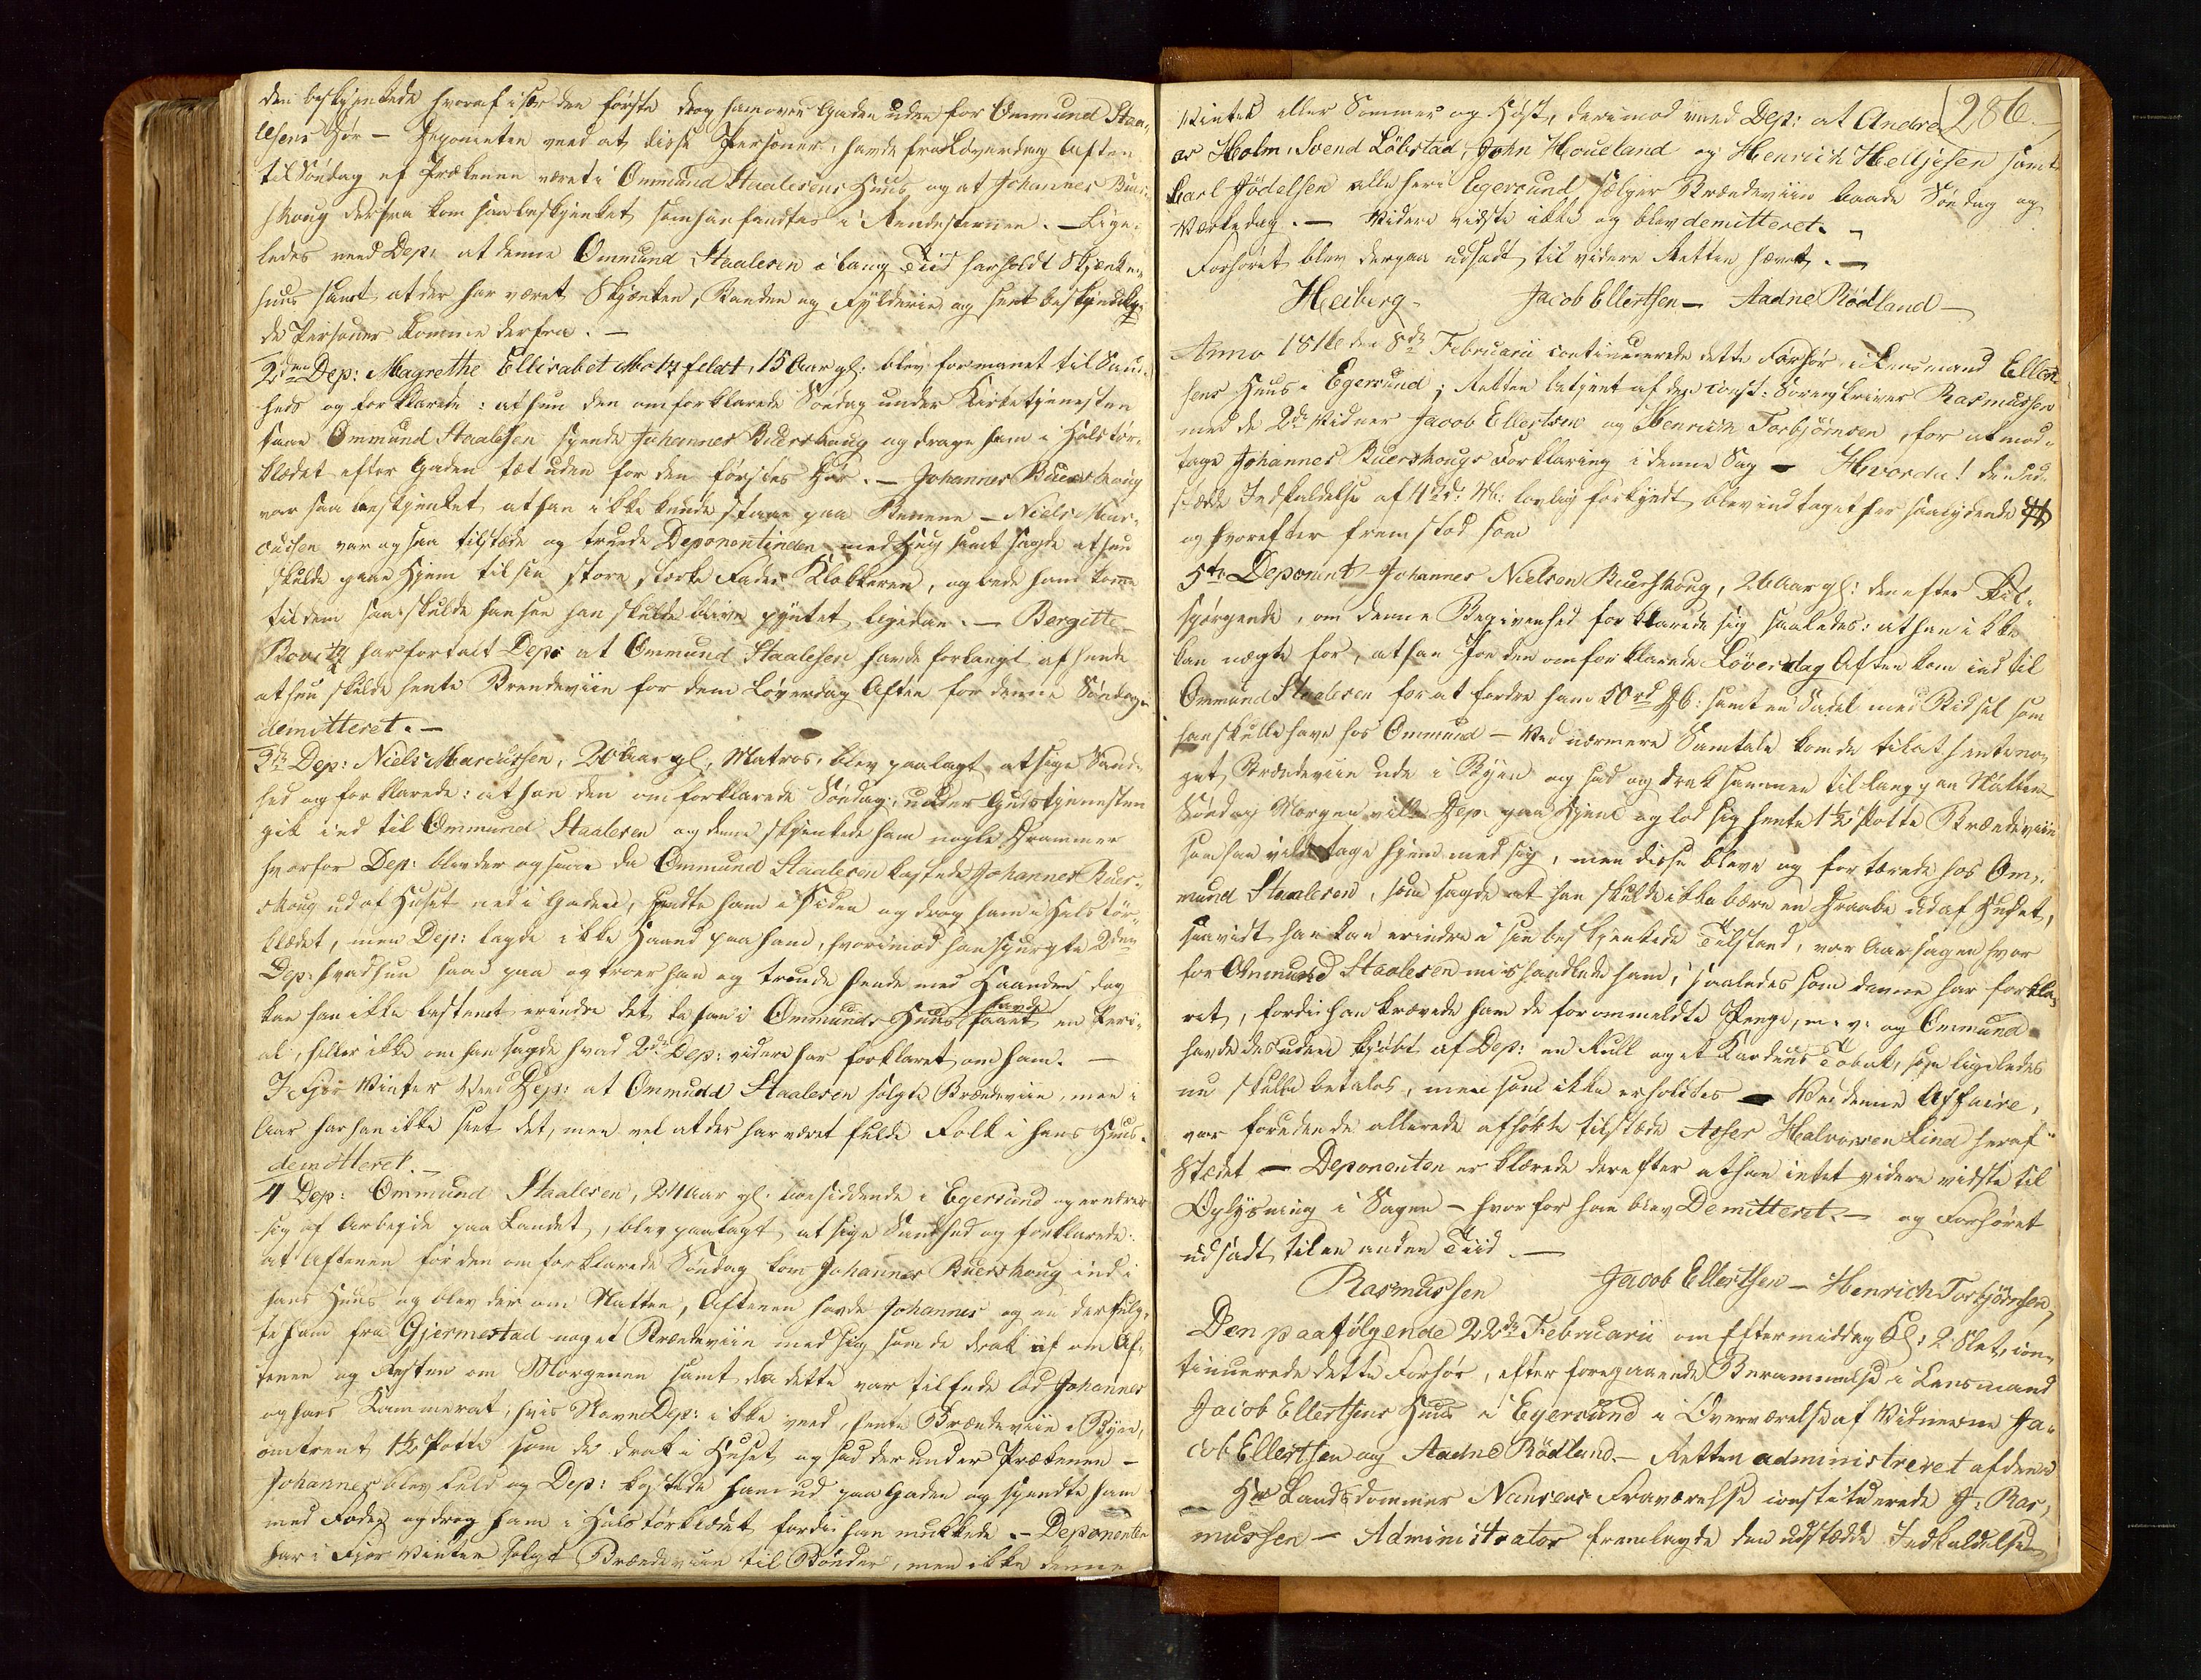 den beskjenkede hvoraf især den første drog ham over Gaden uden for Ommund Staa-
lesens Dør – Deponenten veed at disse Personer, havde fra Løverdag Aften
til Søndag ef Prækenen været i Ommund Staalesens Huus og at Johannes Buer-
skoug derfra kom saa beskjenket som han fandtes i Rendestenen. – Lige-
ledes veed Dep: at denne Ommund Staalesen i lang Tiid har holdt Skjenke-
huus samt at der har været Skjenken, Banden og Fylderie og seet beskjenke-
de Personer komme derfra. –
2den Dep: Magrethe Ellisabet Motzfeldt, 15 Aar gl: blev formanet til Sand-
hed og forklarede: at hun den omforklarede Søndag under Kirketjenesten
saae Ommund Staalesen spende Johannes Buerskoug og drage ham i Halstør-
klædet efter Gaden tæt uden for den førstes Dør. – Johannes Buerskoug
var saa beskjenket at han ikke kunde staae paa Benene – Niels Mar-
cusen var og saa tilstæde og truede Deponentinden med Hug samt sagde at hun
skulde gaae hjem til sin store stærke Fader Klokkeren, og bede ham komme
til dem saa skulde han see han skulde blive pyntet ligedan. – Bergitte
Rovitz har fortalt Dep: at Ommund Staalesen havde forlangt af hende
at hun skulde hente Brendeviin for dem Løverdag Aften før denne Søndag
demitteret. –
3de Dep: Niels Marcussen, 20 Aar gl, Matros, blev paalagt at sige Sand-
hed og forklarede: at han den omforklarede Søndag under Gudstjenesten
gik ind til Ommund Staalesen og denne skjenkede ham nogle Drammer
hvorfor Dep: blev der og saae da Ommund Staalesen kastede Johannes Buer-
skoug ud af Huset ned i Gaden, spendte ham i Siden og drog ham i Halstør-
klædet, men Dep: lagde ikke Haand paa ham, hvorimod han spurgte 2den
Dep: hvad hun saae paa og troer han og truede hende med Haanden, dog
kan han ikke bestemt erindre det da han i Ommunds Huus havde faaet en Peri-
al, heller ikke om han sagde hvad 2de Dep: videre har forklaret om ham. –
I Fjor Vinter veed Dep: at Ommund Staalesen solgte Brændeviin, men i
Aar har han ikke seet det, men vel at der har været fulde Folk i hans Huus.
demitteret. –
4 Dep: Ommund Staalesen, 24 Aar gl. boesiddende i Egersund og ernærer
sig af Arbeyde paa Landet, blev paalagt at sige Sandhed og forklarede:
at Aftenen før den omforklarede Søndag kom Johannes Buerskoug ind i
hans Huus og blev der om Natten, Aftenen havde Johannes og en der fulg-
te ham fra Gjermestad noget Brændeviin med sig som de drak af om Af-
tenen og Resten om Morgenen samt da dette var til Ende lod Johannes
og hans Kammerat, hvis Navn Dep: ikke veed, hente Brændeviin i Byen,
omtrent 1½ Potte som de drak i Huset og sad der under Prækenen –
Johannes blev fuld og Dep: kastede ham ud paa Gaden og spendte ham
med Foden og drog ham i Halstørklædet fordi han mukkede. – Deponenten
har i Fjor Vinter solgt Brændeviin til Bønder, men ikke denne
286.
Vinter eller Sommer og Høst, derimod veed Dep: at Andre
as Holm, Svend Løbstad, John Houeland og Henrich Helljesen samt
Carl Fødelsen alle her i Egersund sælger Brændeviin baade Søndag og
Værkedag. – Videre vidste ikke og blev demitteret. –
Forhøret blev derpaa udsadt til videre Retten hævet. –
Heiberg – Jacob Ellertsen – Aadne Rødland –
Anno 1816 den 8de Februarii continuerede dette Forhør i Lensmand Ellert
sens Huus i Egersund; Retten betjent af den const: Sorenskriver Rasmussen
med de 2de Vidner Jacob Ellertsen og Henrich Torbjørnsen, for at mod-
tage Johannes Buerskougs Forklaring i denne Sag – Hvorda! den ud-
stædde Indkaldelse af 4de d: M: lovlig forkyndt, blev indtaget her saalydende #
og hvorefter fremstod som
5te Deponent Johannes Nielsen Buerskoug, 26 Aar gl: den efter Til-
spørgende, om denne Begivenhed forklarede sig saaledes: at han ikke
kan nægte for, at han Joe den omforklarede Løverdag Aften kom ind til
Ommund Staalesen for at fordre ham 50 rd S6: samt en Sadel med Bidsel som
han skulle have hos Ommund – Ved nærmere Samtale kom de til at hente no-
get Brændeviin ude i Byen og sad og drak sammen til langt paa Natten
Søndag Morgen vilde Dep: gaa hjem og lod sig hente 1½ Potte Brændeviin
som han vilde tage hjem med sig, men disse bleve og fortærede hos Om-
mund Staalesen, som sagde at han skulde ikke bære en Draabe ud af Huset,
saavidt han kan erindre i sin beskjenkede Tilstand, var Aarsagen hvor
for Ommund Staalesen mishandlede ham, saaledes som denne har forkla-
ret, fordi han krævede ham de forommeldte Penge, m. v. og Ommund
havde desuden kjøbt af Dep: en Rull og et Kardeus Tobak, som ligeledes
nu skulle betales, men som ikke erholdtes – Ved denne Affaire,
var foruden de allerede afhørte tilstæde Asser Halvorsen Lind heraf
Stædet – Deponenten erklærede derefter at han intet videre vidste til
Oplysning i Sagen – hvorfor han blev Demitteret. – og Forhøret
udsadt til en anden Tiid. –
Rasmussen Jacob Ellertsen – Henrich Torbjørnsen,
Den paafølgende 22de Februarii om Eftermiddag Kl: 2 Slet, con-
tinuerede dette Forhør, efter foregaaende Berammelse i Lensmand
Jacob Ellertsens Huus i Egersund i Overværelse af Vidnerne Ja-
cob Ellertsen og Aadne Rødland. – Retten administreret af den i
Hr Landsdommer Nansens Fraværelse constituerede J: Ras-
mussen – Administrator fremlagde den udstædde Indkaldelse